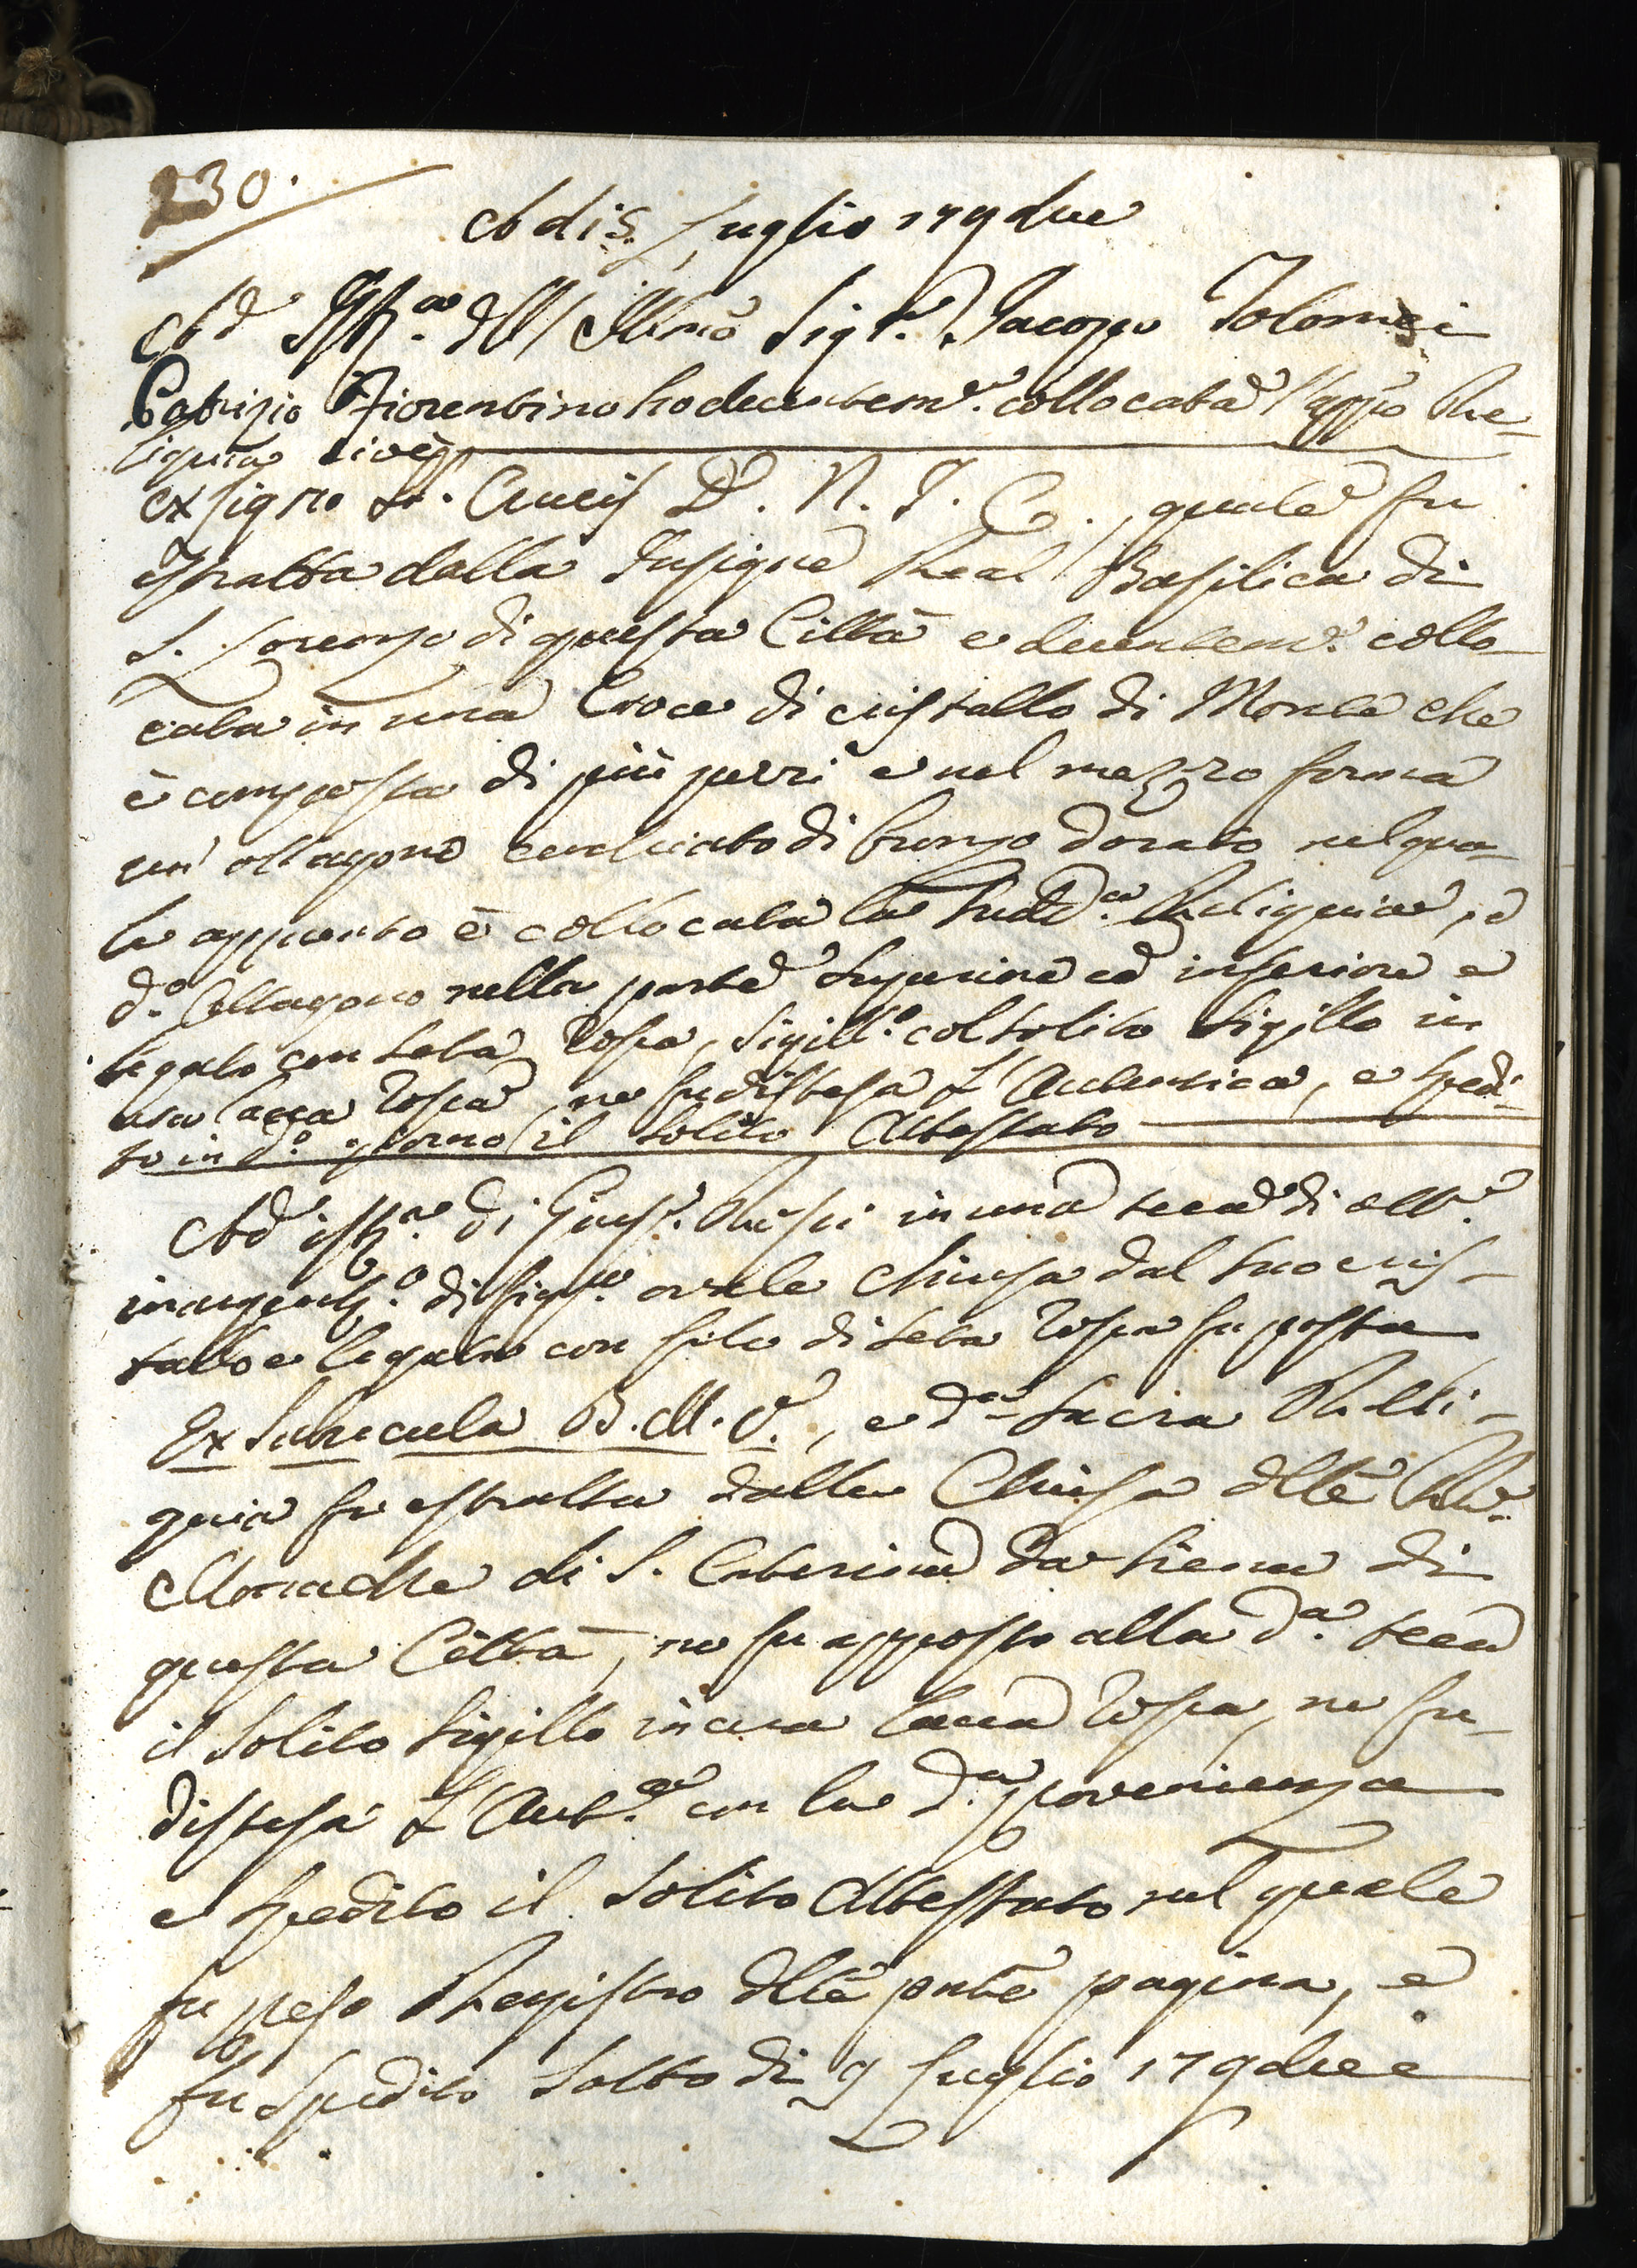 230.
Adi 5. Luglio 179due
Ad Istz.a dell'Illmo Sigr. Jacopo Tolomei
Patrizio Fiorentino ho decentem.e collocata l'appo Re-
liquia cioè
ex ligno S. Crucis D. N. J. C., quale fu
estratta dalla Insigne Real Basilica di
S. Lorenzo di questa Città e decentem.e collo-
cata in una Croce di cristallo di Monte che
è composta di più pezzi e nel mezzo forma
un' ottagono cerchiato di bronzo dorato nel qua-
le appunto è collocata la sudd.a Reliquia, e
d.o Ottagono nella parte superiore ed inferiore e
legato con seta rossa, sigill.o col solito sigillo in
cera lacca rossa, ne fu distesa l'Autentica, e spedi-
to in d.o giorno il solito Attestato
Ad istz.a di Gius.e in una teca di ott.e
inargent.o di fig.a ovale chiusa dal suo cris-
tallo e legata con filo di seta rossa fu posta
Ex Subucula B.M.V., e d.a Sacra Reli-
quia fu estratta dalla Chiesa dlle Rev.
Monache di S. Caterina da Siena di
questa Città, ne fu apposto alla d.a teca
il solito sigillo in cera lacca rossa, ne fu
distesa l'Aut.ca con la d.a provenienza
e spedito il solito Attestato nel quale
fu preso Registro dlle pnte pagina, e
fu spedito sotto di 9 Luglio 179due